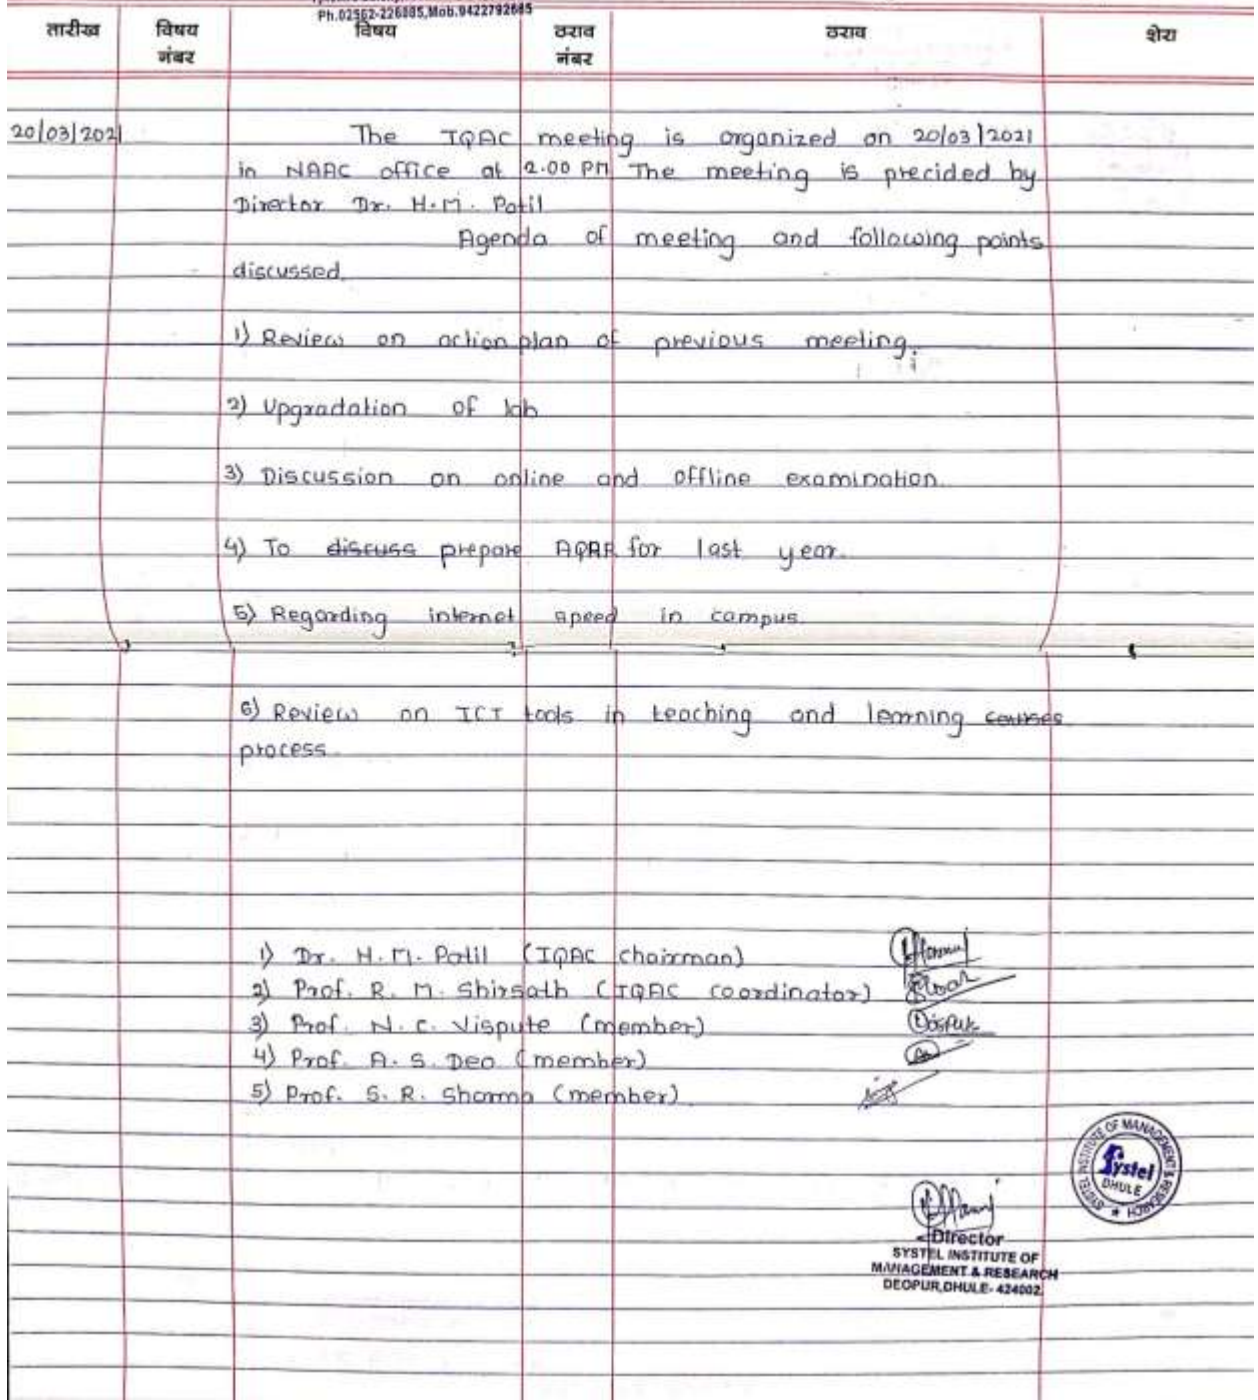 Ph.02562-226885,Mob.9422792685
तारीख विषय विषय ठराव ठराव शेरा
नंबर नंबर
20/03/2021 The IQAC meeting is organized on 20/03/2021
in NAAC office at 2.00 PM The meeting is precided by
Director Dr. H.M. Patil
Agenda of meeting and following points
discussed.
1) Review on action plan of previous meeting.
2) Upgradation of lab
3) Discussion on online and offline examination.
4) To discuss prepare AQAR for last year.
5) Regarding internet speed in campus.
6) Review on ICT tools in teaching and learning courses
process.
1) Dr. H.M. Patil (IQAC chairman)
2) Prof. R. M. Shirsath (IQAC coordinator)
3) Prof. N. C. Vispute (member)
4) Prof. A. S. Deo (member)
5) Prof. S. R. Sharma (member)
SYSTEL INSTITUTE OF MANAGEMENT & RESEARCH
Systel
DHULE
Director
SYSTEL INSTITUTE OF
MANAGEMENT & RESEARCH
DEOPUR,DHULE- 424002.